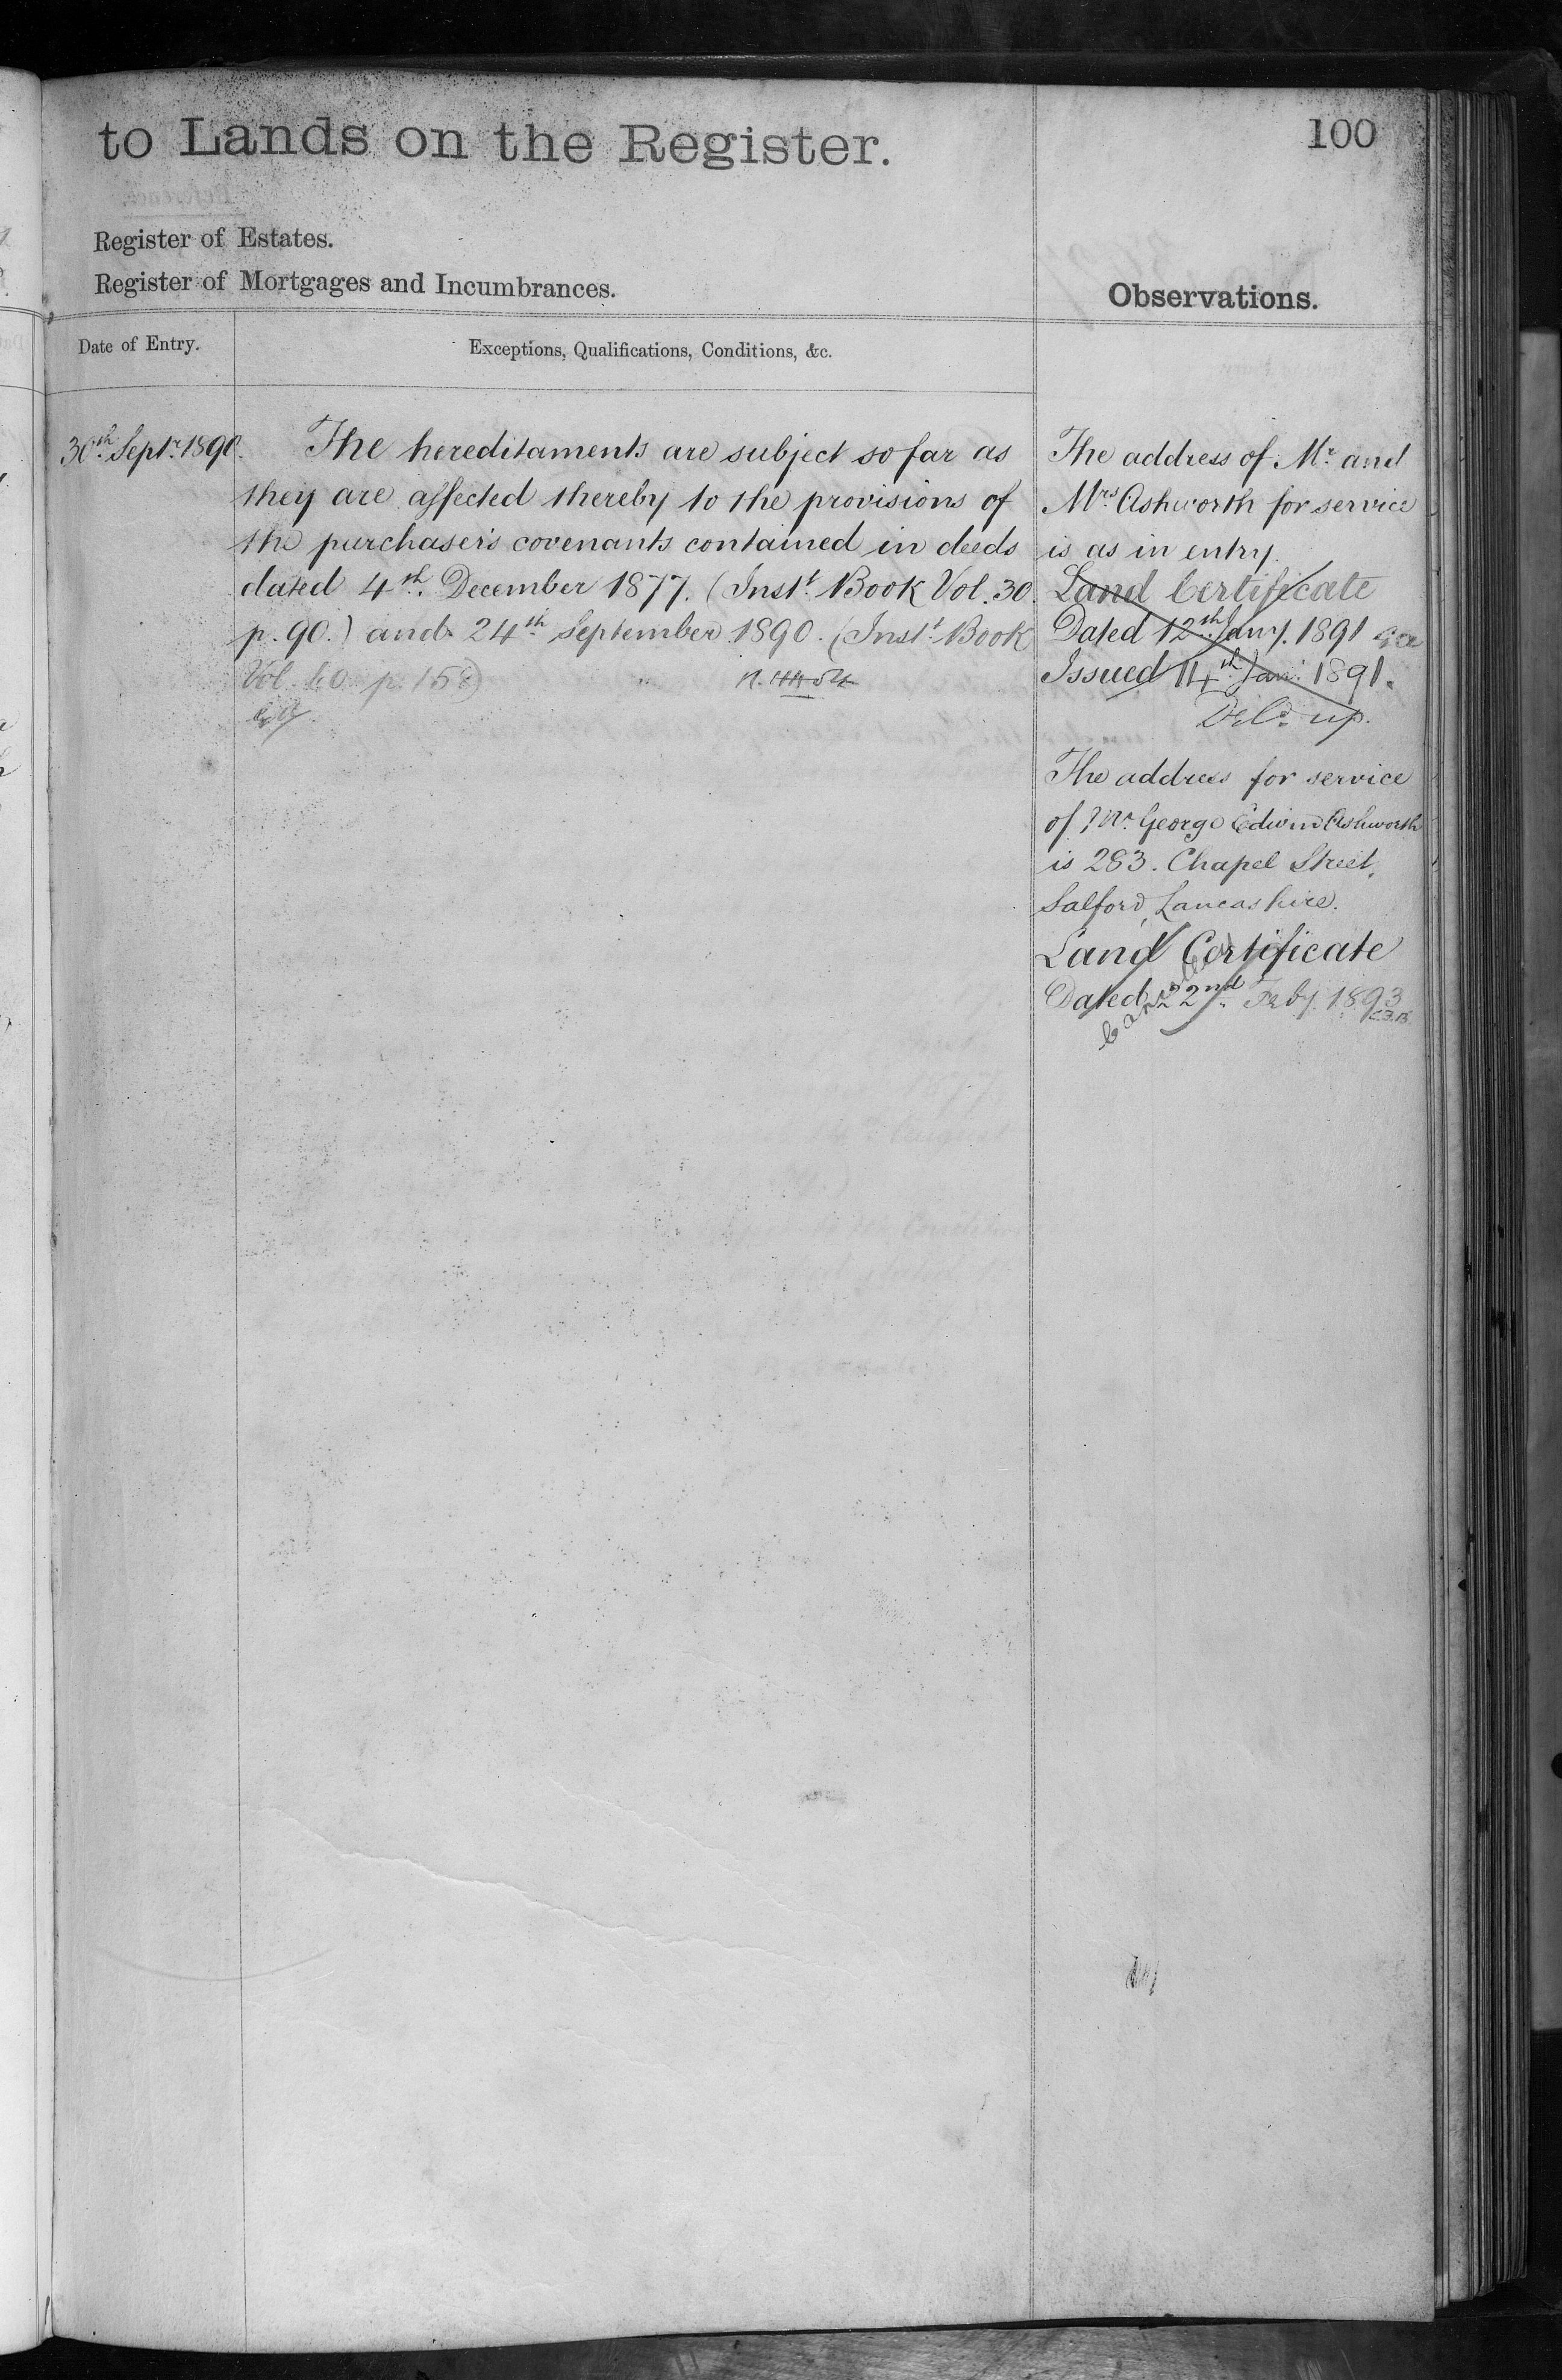 to Lands on the Register.
100
Register of Estates.
Register of Mortgages and Incumbrances.
Observations.
Date of Entry.
Exceptions, Qualifications, Conditions, &c.
30th Septr. 1890.
The hereditaments are subject so far as
they are affected thereby to the provisions of
the purchaser's covenants contained in deeds
dated 4th. December 1877. (Instt. Book Vol. 30.
p. 90.) and 24th September 1890. (Instt. Book
Vol. 60. p. 158)
The address of Mr. and
Mrs. Ashworth for service
is as in entry.
Land Certificate
Dated 12th Jany. 1891
Issued 14th Jan: 1891.
Deld. up.
The address for service
of Mr. George Edwin Ashworth
is 283. Chapel Street,
Salford, Lancashire.
Land Certificate
Dated 22nd Feby. 1893
Cancelled